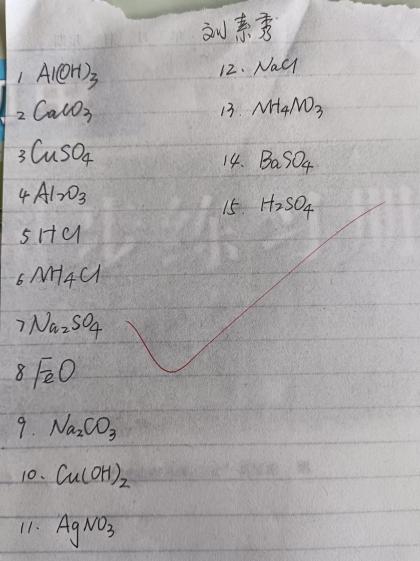 刘素秀
1 Al(OH)3
2 CaCO3
3 CuSO4
4 Al2O3
5 HCl
6 NH4Cl
7 Na2SO4
8 FeO
9. Na2CO3
10. Cu(OH)2
11. AgNO3
12. NaCl
13. NH4NO3
14. BaSO4
15. H2SO4